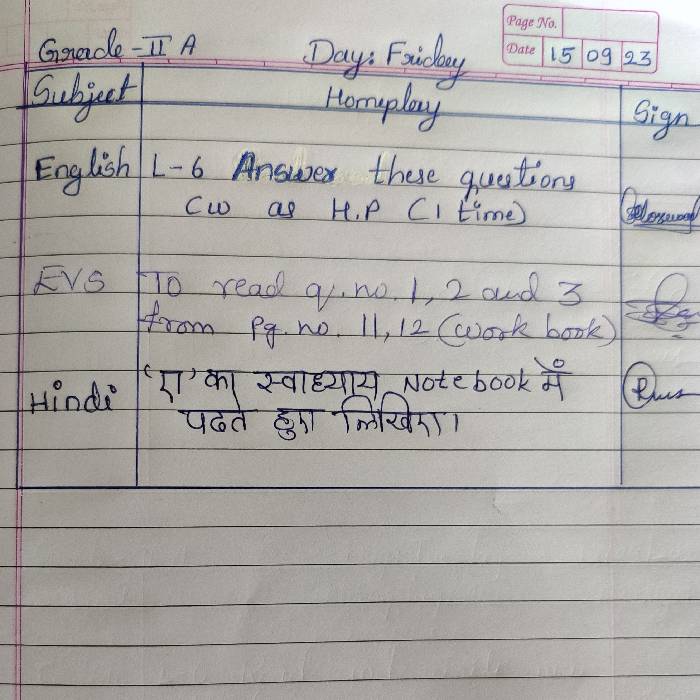 Page No.
Grade - II A Day: Friday Date 15 09 23
Subject Homeplay Sign
English L-6 Answer these questions
CW as H.P (1 time)
EVS To read q. no. 1, 2 and 3
from pg. no. 11, 12 (work book)
Hindi 'ए' का स्वाध्याय Notebook में
पढते हुए लिखिए।